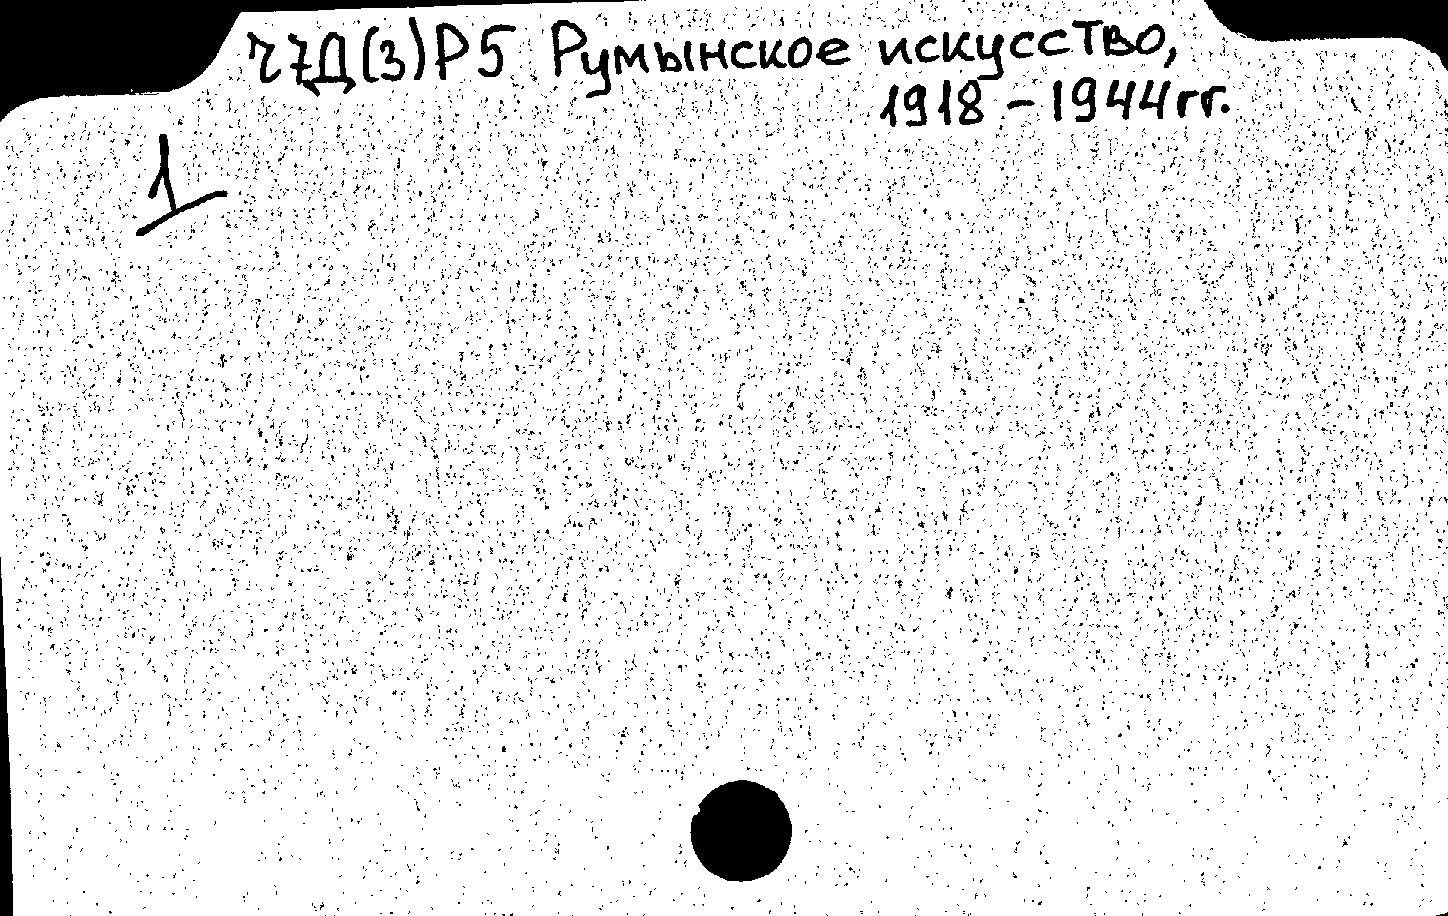 Ч7Д(3)Р5 Румынское искусство,
1918 – 1944 гг.
1